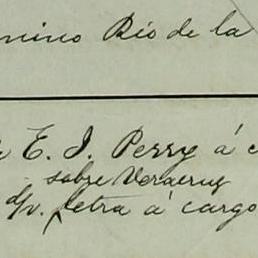 mino Rio de la
E. J. Perry á c
sobre Veracruz
d/v. letra á cargo